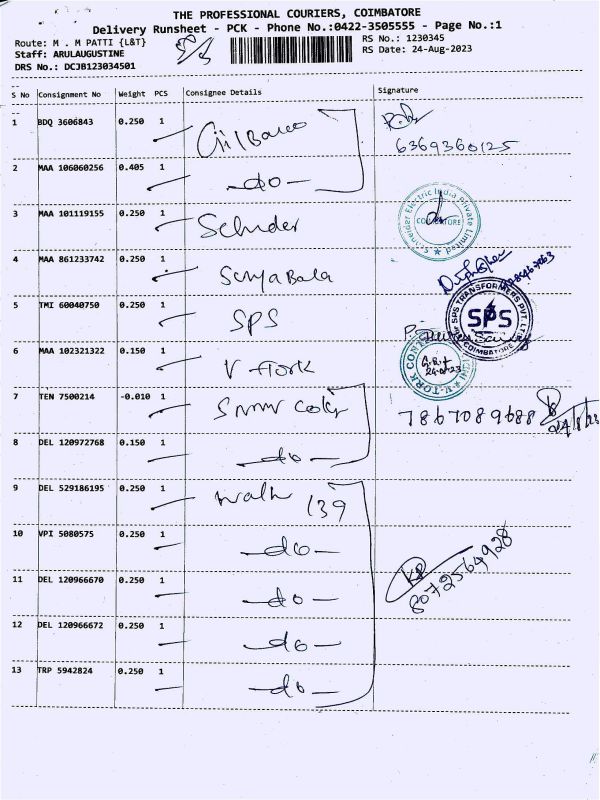 THE PROFESSIONAL COURIERS, COIMBATORE
Delivery Runsheet - PCK - Phone No.:0422-3505555 - Page No.:1
Route: M . M PATTI {L&T}
RS No.: 1230345
Staff: ARULAUGUSTINE
RS Date: 24-Aug-2023
DRS No.: DCJB123034501
S No Consignment No Weight PCS Consignee Details Signature
1 BDQ 3606843 0.250 1
6369360125
2 MAA 106060256 0.405 1 -do-
3 MAA 101119155 0.250 1
Schneider Electric India Private Limited
COIMBATORE
4 MAA 861233742 0.250 1 Suryabala
5 TMI 60040750 0.250 1 SPS
SPS TRANSFORMERS PVT. LTD.
SPS
COIMBATORE
6 MAA 102321322 0.150 1 V-Tork
V-TORK
7 TEN 7500214 -0.010 1
8 DEL 120972768 0.150 1 -do-
9 DEL 529186195 0.250 1 139
10 VPI 5080575 0.250 1 -do-
8072564928
11 DEL 120966670 0.250 1 -do-
12 DEL 120966672 0.250 1 -do-
13 TRP 5942824 0.250 1 -do-